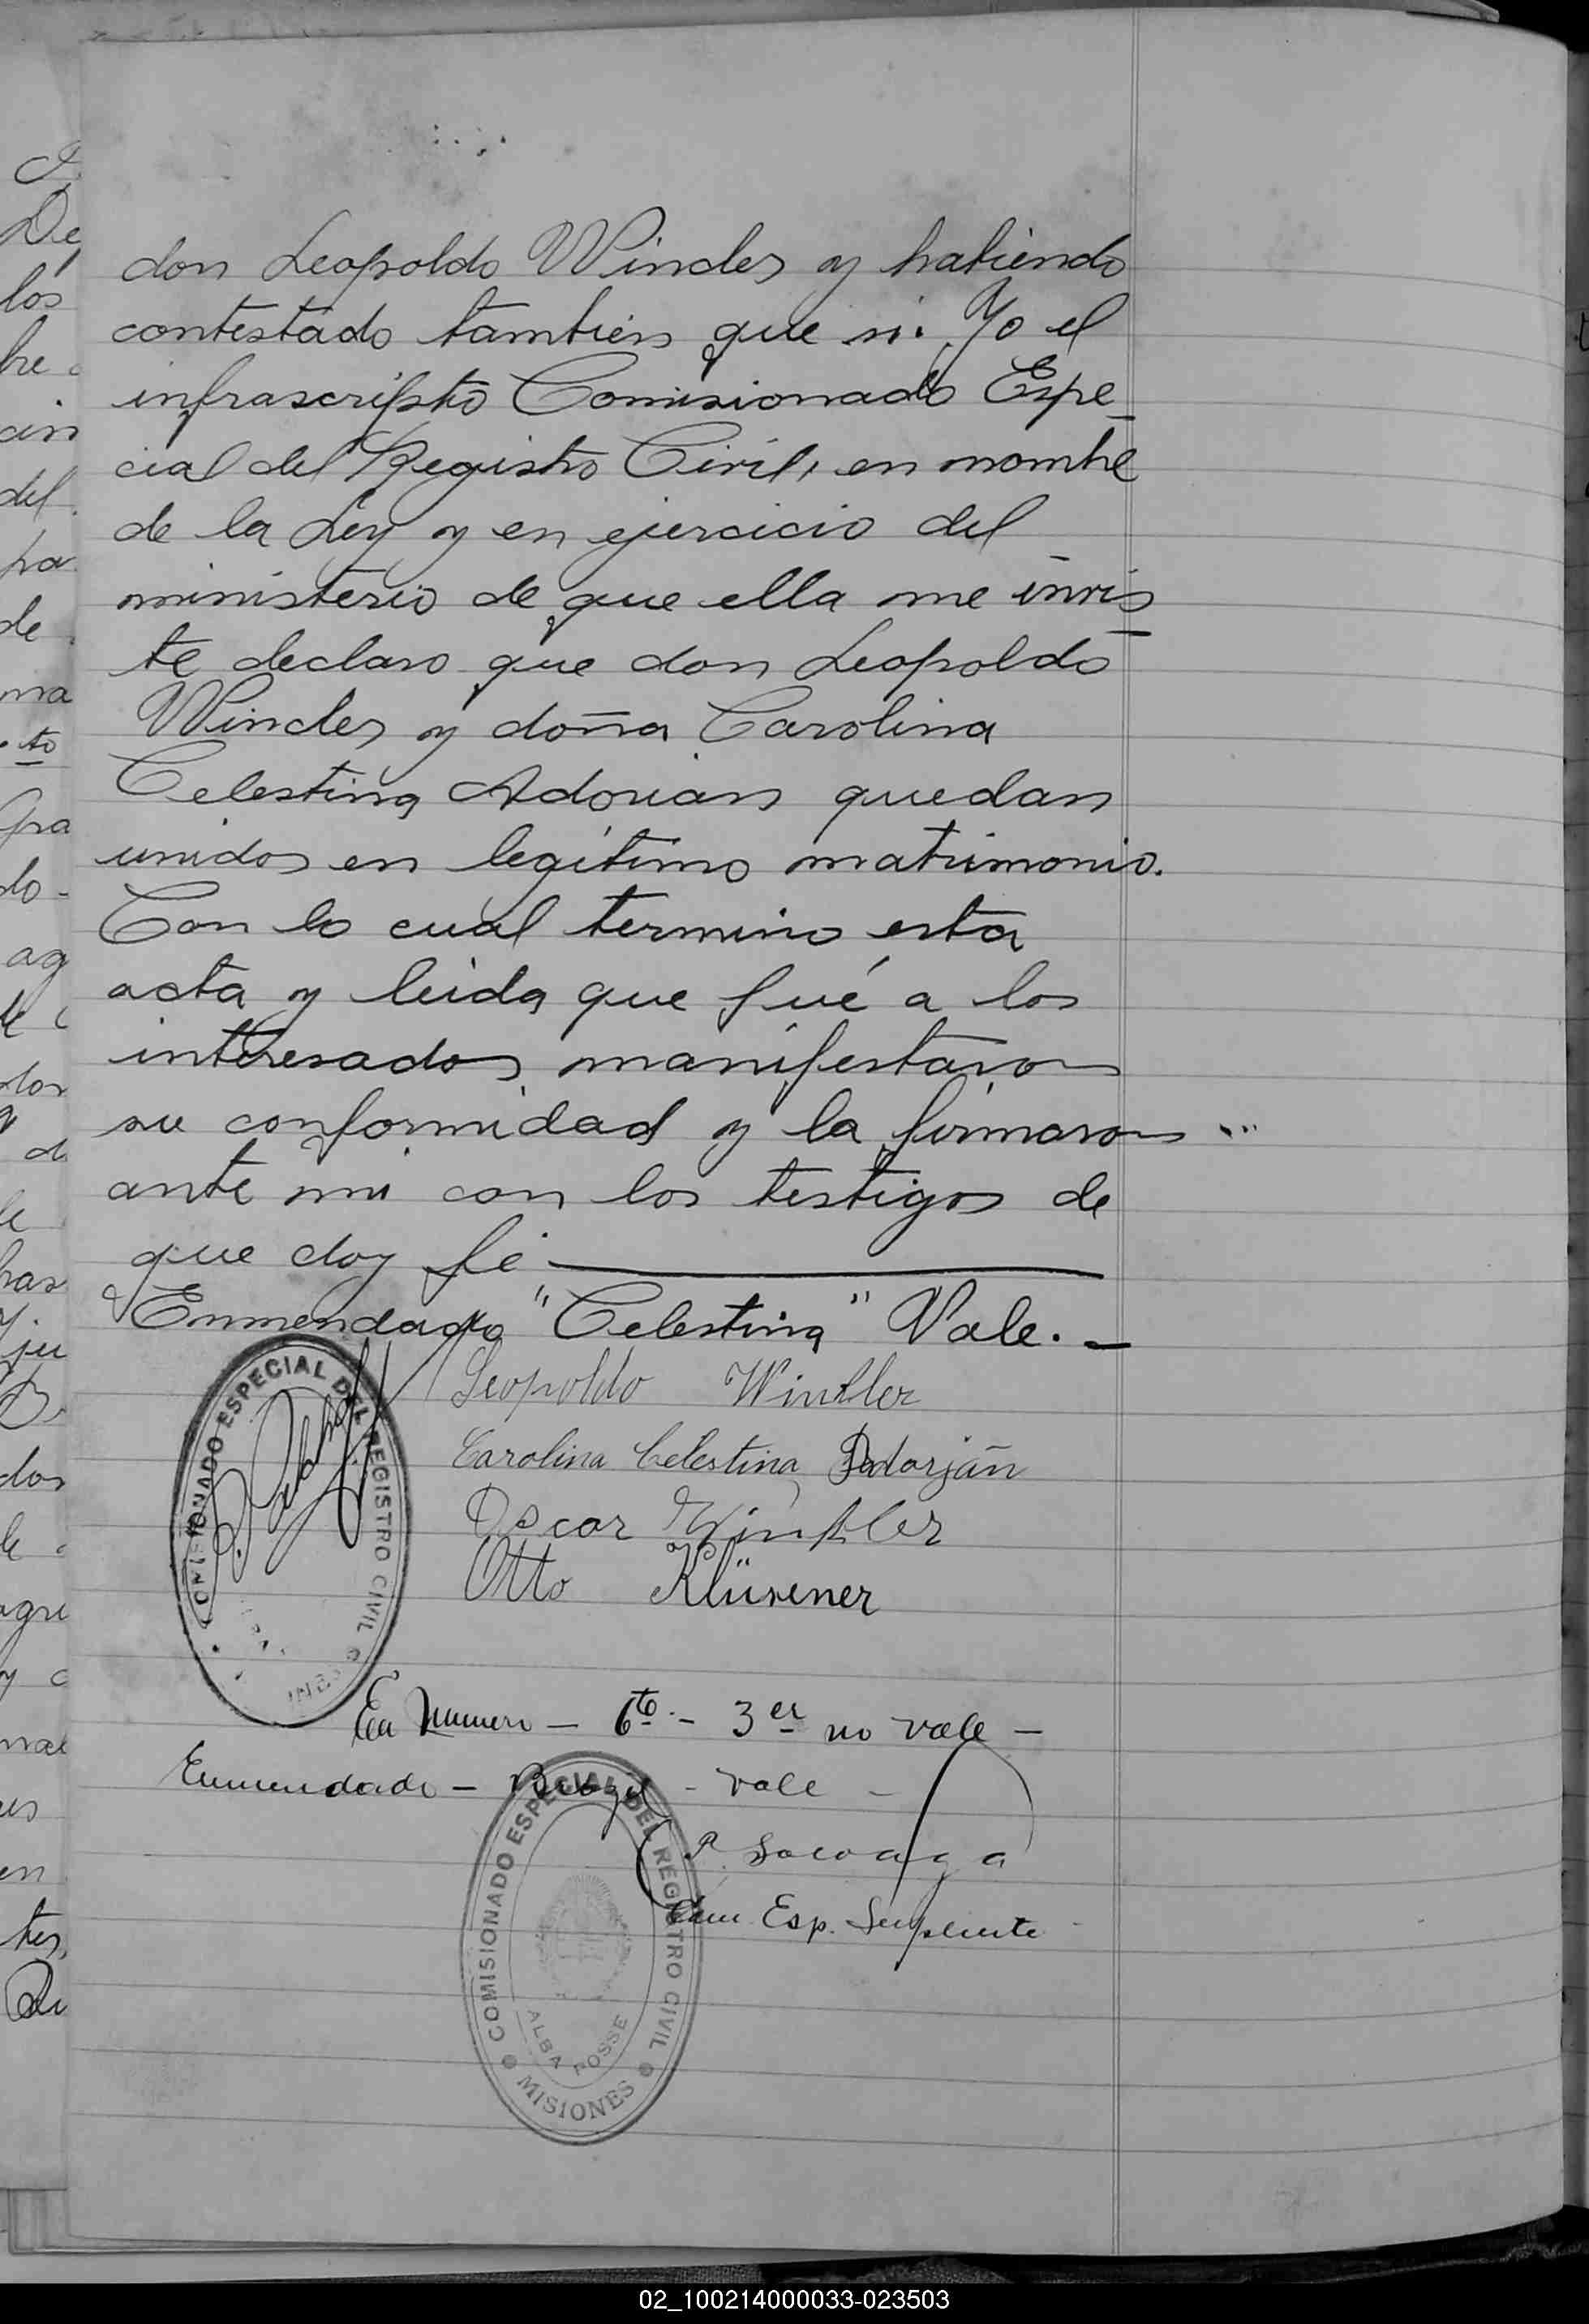 don Leopoldo Wincler y habiendo
contestado tambien que si. Yo el
infrascripto Comisionado Espe_
cial del Registro Civil, en nombre
de la Ley y en ejercicio del
ministerio de que ella me invis_
te declaro que don Leopoldo
Wincler y doña Carolina
Celestina Adorian quedan
unidos en legítimo matrimonio.
Con lo cual termino esta
acta y leida que fué a los
interesados manifestaron
su conformidad y la firmaron
ante mi con los testigos de
que doy fé
Enmendado "Celestina" Vale.-
Leopoldo Winkler
Carolina Celestina Adorján
Oscar Winkler
Otto Klüsener
COMISIONADO ESPECIAL DEL REGISTRO CIVIL
En Numero - 6to - 3er no vale -
Enmendado - - vale -
Com Esp. Suplente
COMISIONADO ESPECIAL DEL REGISTRO CIVIL
ALBA POSSE
MISIONES
02_100214000033-023503